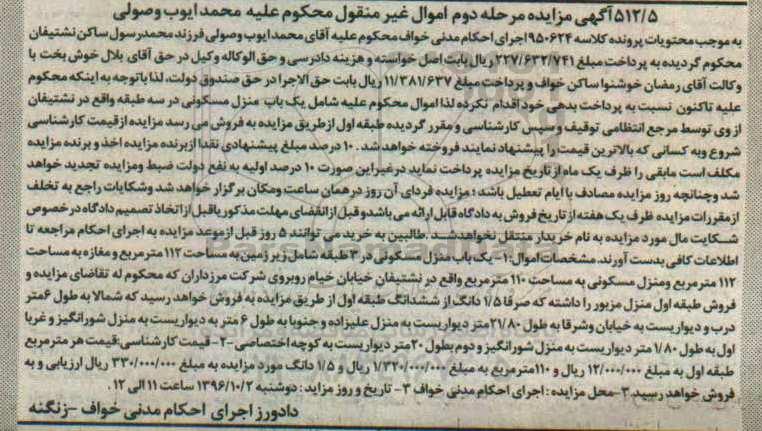 ۵۱۲/۵ آگهی مزایده مرحله دوم اموال غیر منقول محکوم علیه محمد ایوب وصولی
به موجب محتویات پرونده کلاسه ۹۵۰۶۲۴ اجرای احکام مدنی خواف محکوم علیه آقای محمد ایوب وصولی فرزند محمد رسول ساکن نشتیفان
محکوم گردیده به پرداخت مبلغ ۲۲۷/۶۳۲/۷۴۱ ریال بابت اصل خواسته و هزینه دادرسی و حق الوکاله وکیل در حق آقای بلال خوش بخت با
وکالت آقای رمضان خوشنوا ساکن خواف و پرداخت مبلغ ۱۱/۳۸۱/۶۳۷ ریال بابت حق الاجرا در حق صندوق دولت، لذا با توجه به اینکه محکوم
علیه تاکنون نسبت به پرداخت بدهی خود اقدام نکرده لذا اموال محکوم علیه شامل یک باب منزل مسکونی در سه طبقه واقع در نشتیفان
از وی توسط مرجع انتظامی توقیف و سپس کارشناسی و مقرر گردیده طبقه اول از طریق مزایده به فروش می رسد مزایده از قیمت کارشناسی
شروع و به کسانی که بالاترین قیمت را پیشنهاد نمایند فروخته خواهد شد. ۱۰ درصد مبلغ پیشنهادی نقدا از برنده مزایده اخذ و برنده مزایده
مکلف است مابقی را ظرف یک ماه از تاریخ مزایده پرداخت نماید در غیر این صورت ۱۰ درصد اولیه به نفع دولت ضبط و مزایده تجدید خواهد
شد و چنانچه روز مزایده مصادف با ایام تعطیل باشد؛ مزایده فردای آن روز در همان ساعت و مکان برگزار خواهد شد و شکایات راجع به تخلف
از مقررات مزایده ظرف یک هفته از تاریخ فروش به دادگاه قابل ارائه می باشد و قبل از انقضای مهلت مذکور یا قبل از اتخاذ تصمیم دادگاه در خصوص
شکایت مال مورد مزایده به نام خریدار منتقل نخواهد شد. طالبین به خرید می توانند ۵ روز قبل از موعد مزایده به اجرای احکام مراجعه تا
اطلاعات کافی بدست آورند. مشخصات اموال: ۱- یک باب منزل مسکونی در ۳ طبقه شامل زیر زمین به مساحت ۱۱۲ متر مربع و مغازه به مساحت
۱۱۲ متر مربع ومنزل مسکونی به مساحت ۱۱۰ متر مربع واقع در نشتیفان خیابان خیام روبروی شرکت مرزداران که محکوم له تقاضای مزایده و
فروش طبقه اول منزل مزبور را داشته که صرفا ۱/۵ دانگ از ششدانگ طبقه اول از طریق مزایده به فروش خواهد رسید که شمالا به طول ۶ متر
درب و دیواریست به خیابان وشرقا به طول ۲۱/۸۰ متر دیواریست به منزل علیزاده و جنوبا به طول ۶ متر به دیواریست به منزل شورانگیز و غربا
اول به طول ۱/۸۰ متر دیواریست به منزل شورانگیز و دوم بطول ۲۰ متر دیواریست به کوچه اختصاصی -۲- قیمت کارشناسی: قیمت هر متر مربع
طبقه اول به مبلغ ۱۲/۰۰۰/۰۰۰ ریال و ۱۱۰ متر مربع به مبلغ ۱/۳۲۰/۰۰۰/۰۰۰ ریال و ۱/۵ دانگ مورد مزایده به مبلغ ۳۳۰/۰۰۰/۰۰۰ ریال ارزیابی و به
فروش خواهد رسید. ۳- محل مزایده: اجرای احکام مدنی خواف ۳- تاریخ و روز مزاید: دوشنبه ۱۳۹۶/۱۰/۲ ساعت ۱۱ الی ۱۲.
دادورز اجرای احکام مدنی خواف - زنگنه